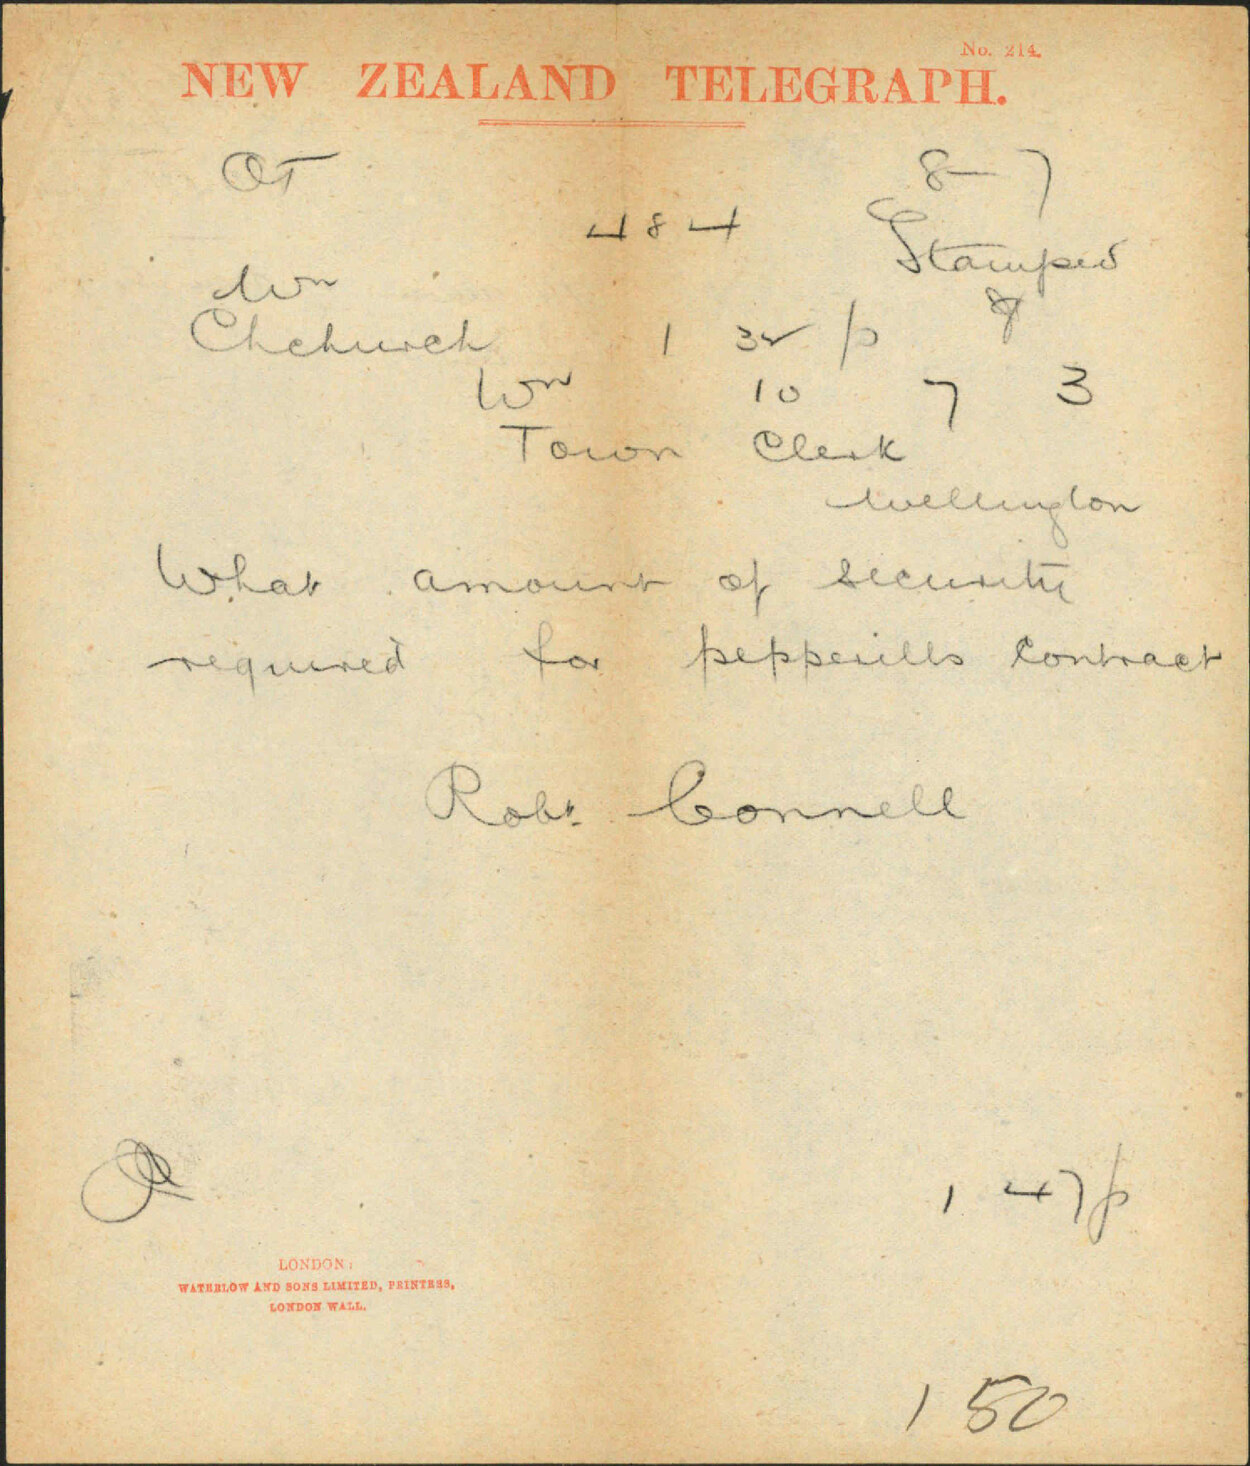 No. 214.
NEW ZEALAND TELEGRAPH.
OT 8-7
484 Stamped
Wn
Chchurch 1 32 p
Wn 10 7 3
Town Clerk
Wellington
What amount of security
required for pepperills contract
Robt. Connell
1 47p
LONDON:
WATERLOW AND SONS LIMITED, PRINTERS,
LONDON WALL.
150